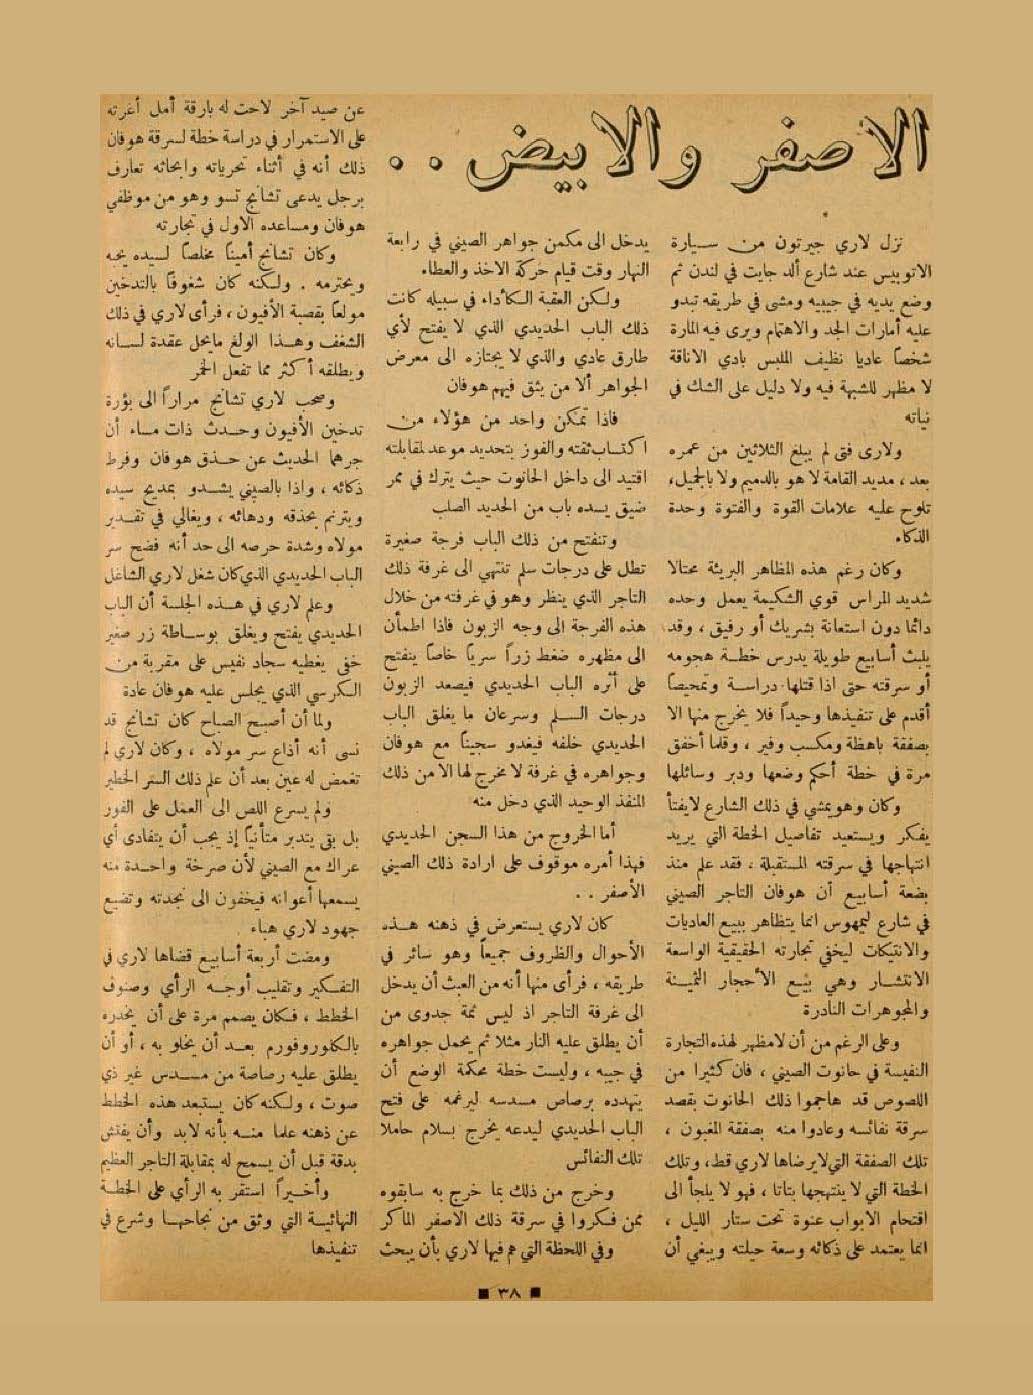 الاصفر والابيض . .
نزل لاري جيرتون من سيارة
الاتوبيس عند شارع ألد جايت في لندن ثم
وضع يديه في جيبيه ومشى في طريقه تبدو
عليه أمارات الجد والاهتمام ويرى فيه المارة
شخصاً عاديا نظيف الملبس بادي الاناقة
لا مظهر للشبهة فيه ولا دليل على الشك في
نياته
ولارى فتى لم يبلغ الثلاثين من عمره
بعد ، مديد القامة لا هو بالدميم ولا بالجميل،
تلوح عليه علامات القوة والفتوة وحدة
الذكاء
وكان رغم هذه المظاهر البريئة محتالا
شديد المراس قوي الشكيمة يعمل وحده
دائما دون استعانة بشريك أو رفيق ، وقد
يلبث أسابيع طويلة يدرس خطة هجومه
أو سرقته حتى اذا قتلها دراسة وتمحيصاً
أقدم على تنفيذها وحيداً فلا يخرج منها الا
بصفقة باهظة ومكسب وفير ، وقلما أخفق
مرة في خطة أحكم وضعها ودبر وسائلها
وكان وهو يمشي في ذلك الشارع لا يفتأ
يفكر ويستعيد تفاصيل الخطة التي يريد
انتهاجها في سرقته المستقبلة ، فقد علم منذ
بضعة أسابيع أن هوفان التاجر الصيني
في شارع ليمهوس انما يتظاهر ببيع العاديات
والانتيكات ليخفي تجارته الحقيقية الواسعة
الانتشار وهي بيع الأحجار الثمينة
والمجوهرات النادرة
وعلى الرغم من أن لامظهر لهذه التجارة
النفيسة في حانوت الصيني ، فان كثيرا من
اللصوص قد هاجموا ذلك الحانوت بقصد
سرقة نفائسه وعادوا منه بصفقة المغبون ،
تلك الصفقة التي لا يرضاها لاري قط، وتلك
الخطة التي لا ينتهجها بتاتا ، فهو لا يلجأ الى
اقتحام الابواب عنوة تحت ستار الليل ،
انما يعتمد على ذكائه وسعة حيلته ويبغي أن
يدخل الى مكمن جواهر الصيني في رابعة
النهار وقت قيام حركة الاخذ والعطاء
ولكن العقبة الكأداء في سبيله كانت
ذلك الباب الحديدي الذي لا يفتح لأي
طارق عادي والذي لا يجتازه الى معرض
الجواهر ألا من يثق فيهم هوفان
فاذا تمكن واحد من هؤلاء من
اكتساب ثقته والفوز بتحديد موعد لمقابلته
اقتيد الى داخل الحانوت حيث يترك في ممر
ضيق يسده باب من الحديد الصلب
وتنفتح من ذلك الباب فرجة صغيرة
تطل على درجات سلم تنتهي الى غرفة ذلك
التاجر الذي ينظر وهو في غرفته من خلال
هذه الفرجة الى وجه الزبون فاذا اطمأن
الى مظهره ضغط زراً سرياً خاصاً ينفتح
على أثره الباب الحديدي فيصعد الزبون
درجات السلم وسرعان ما يغلق الباب
الحديدي خلفه فيغدو سجيناً مع هوفان
وجواهره في غرفة لا مخرج لها الا من ذلك
المنفذ الوحيد الذي دخل منه
أما الخروج من هذا السجن الحديدي
فهذا أمره موقوف على ارادة ذلك الصيني
الأصفر . .
كان لاري يستعرض في ذهنه هذه
الأحوال والظروف جميعاً وهو سائر في
طريقه ، فرأى منها أنه من العبث أن يدخل
الى غرفة التاجر اذ ليس ثمة جدوى من
أن يطلق عليه النار مثلا ثم يحمل جواهره
في جيبه ، وليست خطة محكمة الوضع أن
يتهدده برصاص مسدسه ليرغمه على فتح
الباب الحديدي ليدعه يخرج بسلام حاملا
تلك النفائس
وخرج من ذلك بما خرج به سابقوه
ممن فكروا في سرقة ذلك الاصفر الماكر
وفي اللحظة التي هم فيها لاري بأن يبحث
عن صيد آخر لاحت له بارقة أمل أغرته
على الاستمرار في دراسة خطة لسرقة هوفان
ذلك أنه في أثناء تحرياته وابحاثه تعارف
برجل يدعى تشانج تسو وهو من موظفي
هوفان ومساعده الاول في تجارته
وكان تشانج أميناً مخلصاً لسيده يحبه
ويحترمه . ولكنه كان شغوفا بالتدخين
مولعاً بقصبة الأفيون ، فرأى لاري في ذلك
الشغف وهذا الولع مايحل عقدة لسانه
ويطلقه أكثر مما تفعل الخمر
وصحب لاري تشانج مراراً الى بؤرة
تدخين الأفيون وحدث ذات مساء أن
جرهما الحديث عن حذق هوفان وفرط
ذكائه ، واذا بالصيني يشدو بمديح سيده
ويترنم بحذقه ودهائه ، ويغالي في تقدير
مولاه وشدة حرصه الى حد أنه فضح سر
الباب الحديدي الذي كان شغل لاري الشاغل
وعلم لاري في هذه الجلسة أن الباب
الحديدي يفتح ويغلق بوساطة زر صغير
خفى يغطيه سجاد نفيس على مقربة من
الكرسي الذي يجلس عليه هوفان عادة
ولما أن أصبح الصباح كان تشانج قد
نسى أنه أذاع سر مولاه ، وكان لاري لم
تغمض له عين بعد أن علم ذلك السر الخطير
ولم يسرع اللص الى العمل على الفور
بل بقى يتدبر متأنياً إذ يجب أن يتفادى أي
عراك مع الصيني لأن صرخة واحدة منه
يسمعها أعوانه فيخفون الى نجدته وتضيع
جهود لاري هباء
ومضت أربعة أسابيع قضاها لاري في
التفكير وتقليب أوجه الرأي وصنوف
الخطط ، فكان يصمم مرة على أن يخدره
بالكلوروفورم بعد أن يخلو به ، أو أن
يطلق عليه رصاصة من مسدس غير ذي
صوت ، ولكنه كان يستبعد هذه الخطط
عن ذهنه علما منه بأنه لابد وأن يفتش
بدقة قبل أن يسمح له بمقابلة التاجر العظيم
وأخيراً استقر به الرأي على الخطة
النهائية التي وثق من نجاحها وشرع في
تنفيذها
■ ٣٨ ■